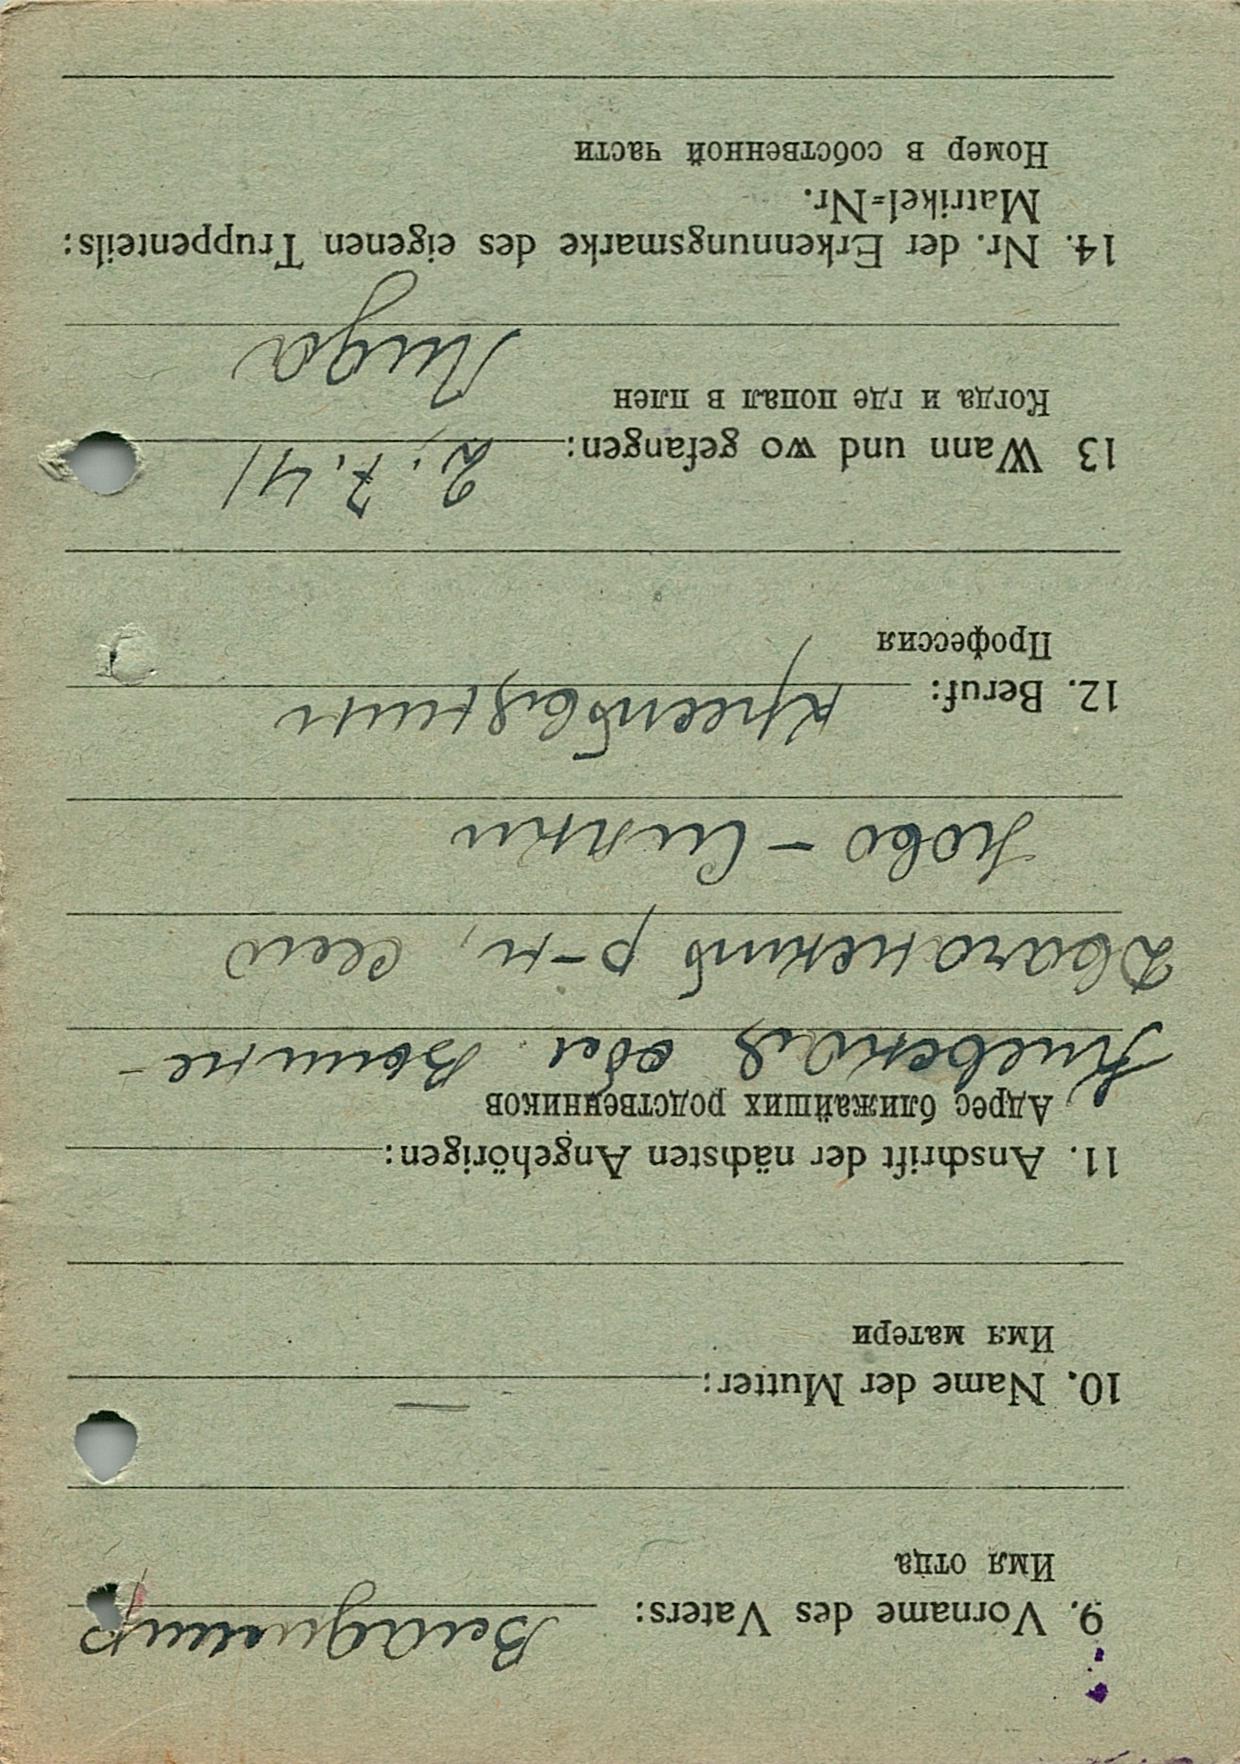 9. Vorname des Vaters: Владимир
Имя отца
10. Name der Mutter: —
Имя матери
11. Anschrift der nächsten Angehörigen:
Адрес ближайших родственников
Киевская обл.
р-н, село
Ново-
12. Beruf:
Профессия
13 Wann und wo gefangen: 2.7.41
Когда и где попал в плен
Лида
14. Nr. der Erkennungsmarke des eigenen Truppenteils:
Matrikel=Nr.
Номер в собственной части